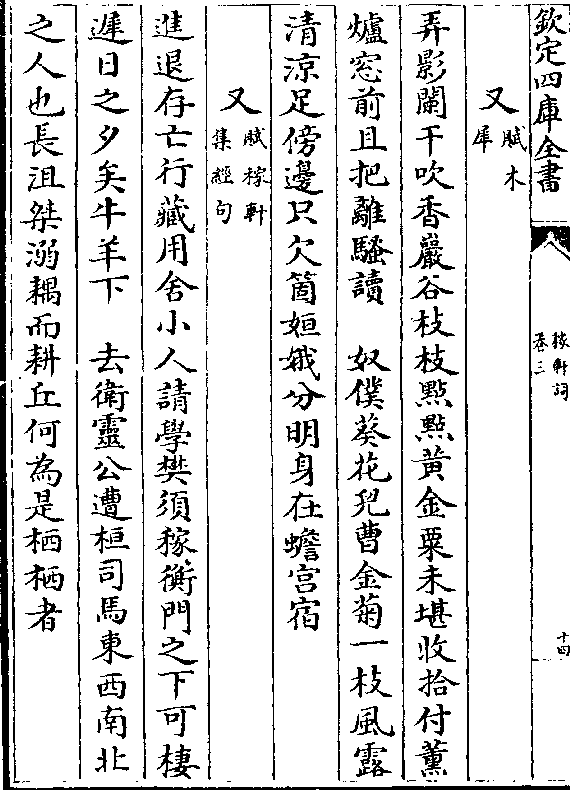 欽定四庫全書
稼軒詞
卷三
十四
又賦木犀
弄影闌干吹香巖谷枝枝點點黃金粟未堪收拾付薰
爐窓前且把離騷讀　奴僕葵花兒曹金菊一枝風露
清凉足傍邊只欠箇姮娥分明身在蟾宫宿
又賦稼軒集經句
進退存亡行藏用舍小人請學樊須稼衡門之下可棲
遲日之夕矣牛羊下　去衛靈公遭桓司馬東西南北
之人也長沮桀溺耦而耕丘何為是栖栖者